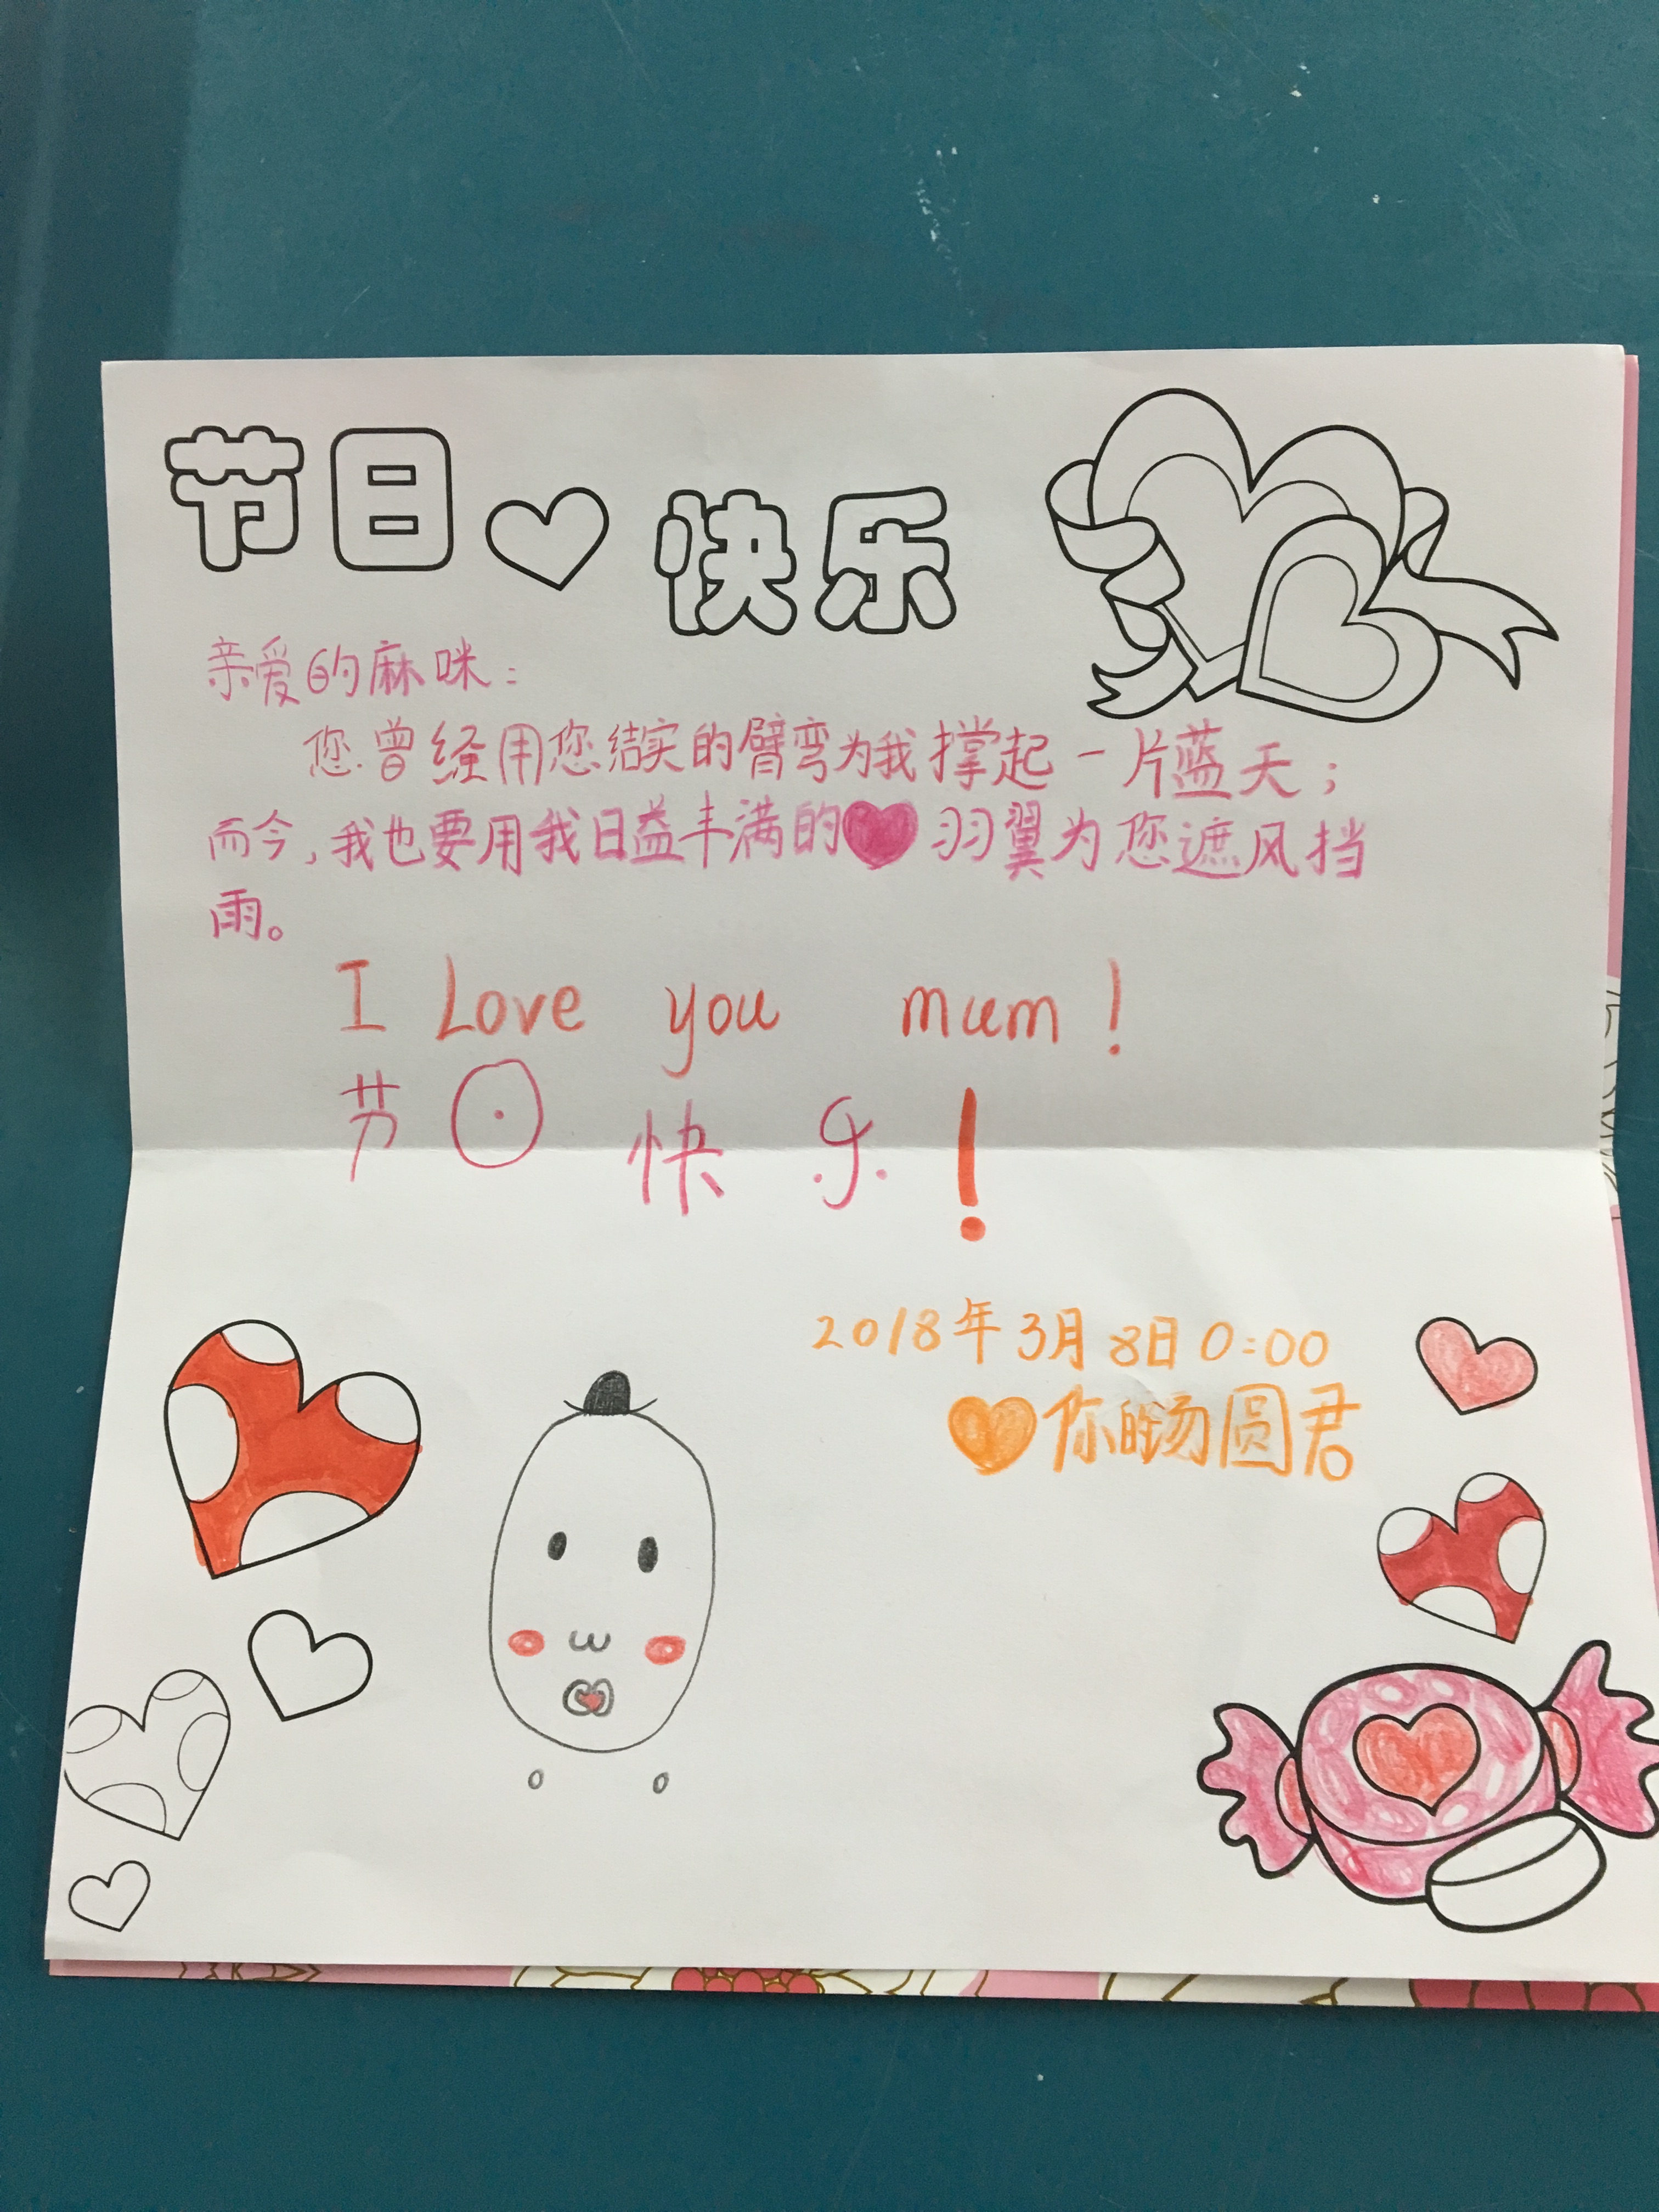 节日 快乐
亲爱的麻咪：
您曾经用您结实的臂弯为我撑起一片蓝天；
而今，我也要用我日益丰满的羽翼为您遮风挡
雨。
I Love you mum!
节日快乐！
2018年3月8日0:00
你的汤圆君